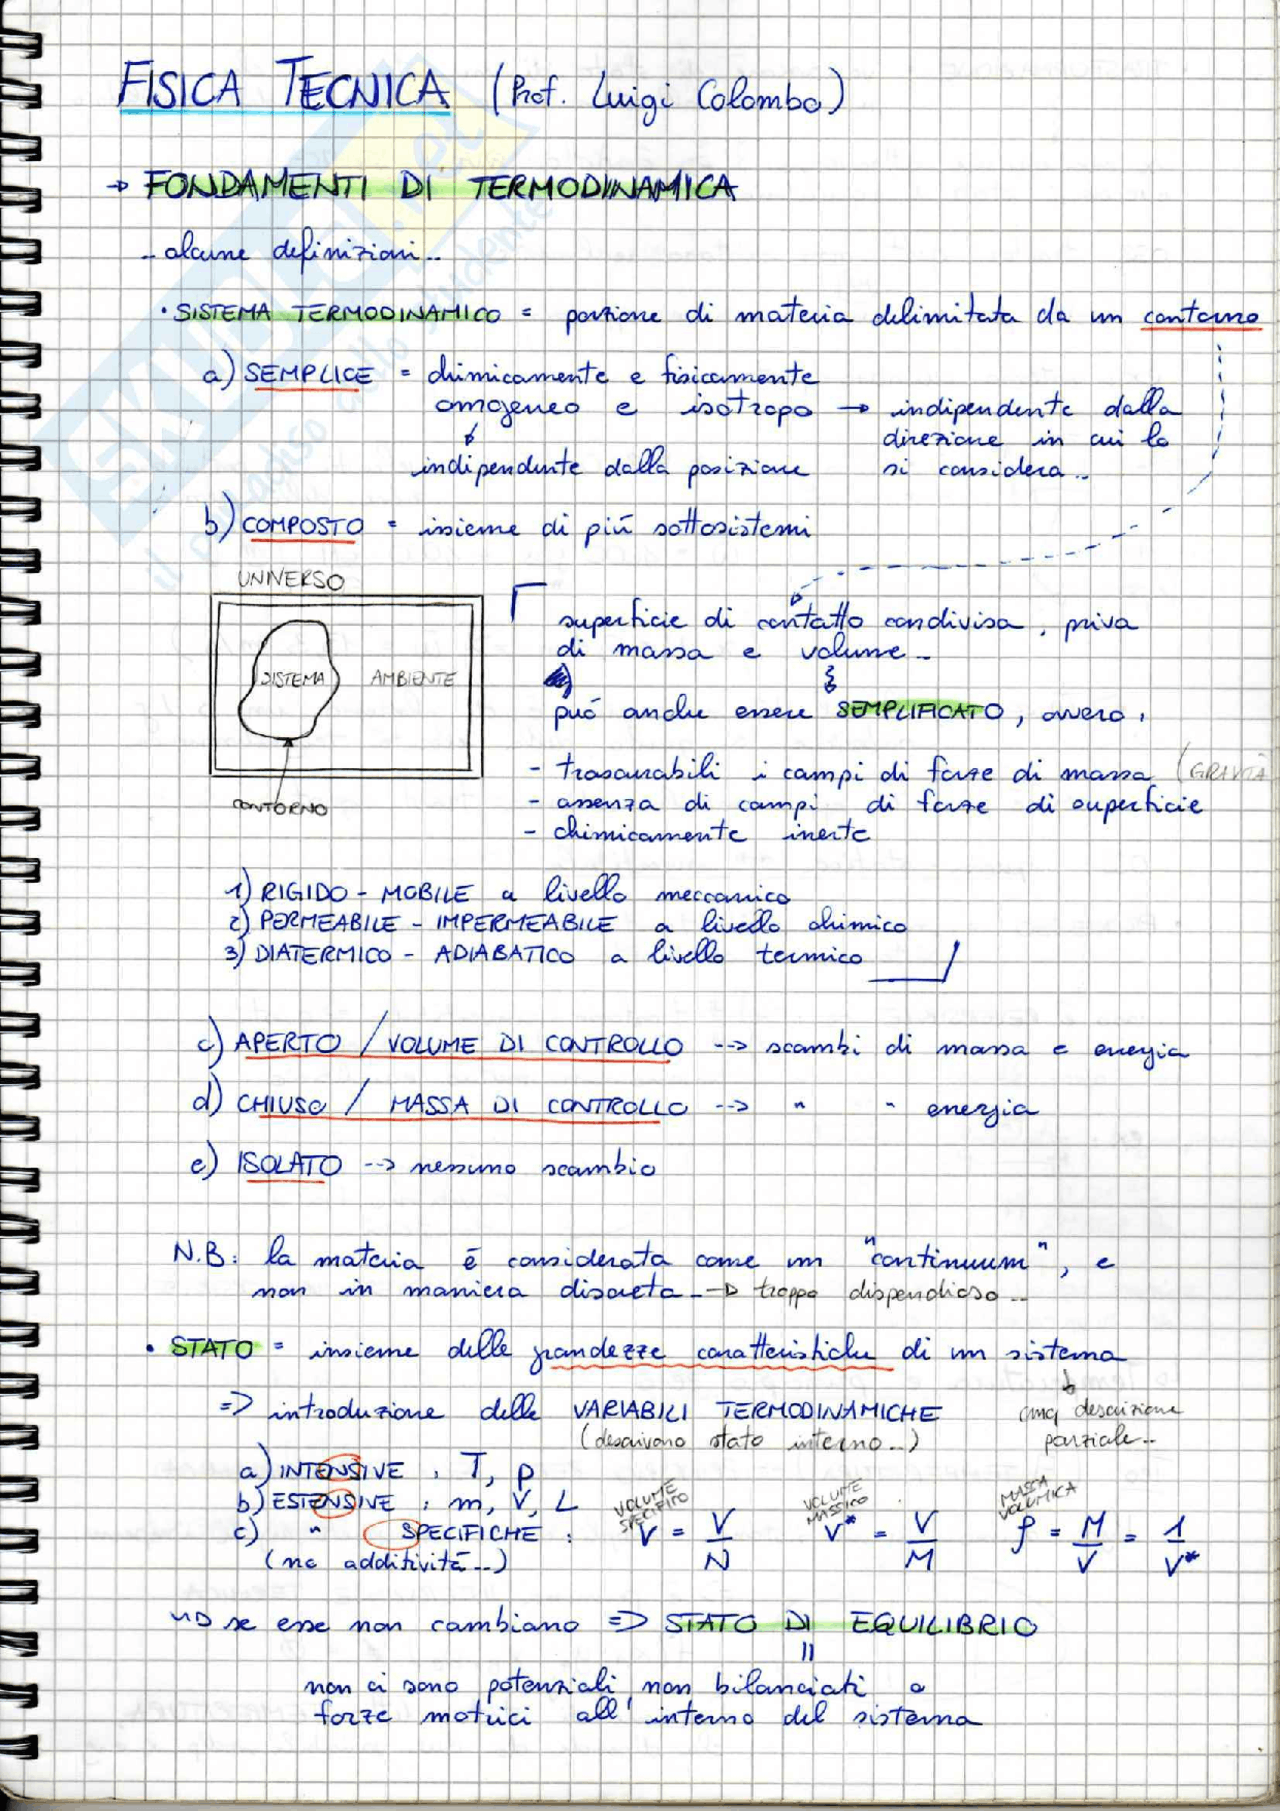 FISICA TECNICA (Prof. Luigi Colombo)
→ FONDAMENTI DI TERMODINAMICA
.. alcune definizioni ..
• SISTEMA TERMODINAMICO = porzione di materia delimitata da un contorno
a) SEMPLICE = chimicamente e fisicamente
omogeneo e isotropo → indipendente dalla
direzione in cui lo
si considera ..
indipendente dalla posizione
b) COMPOSTO = insieme di più sottosistemi
UNIVERSO
SISTEMA AMBIENTE
CONTORNO
superficie di contatto condivisa, priva
di massa e volume ..
può anche essere SEMPLIFICATO, ovvero:
- trascurabili i campi di forze di massa (GRAVITÀ
- assenza di campi di forze di superficie
- chimicamente inerte
1) RIGIDO - MOBILE a livello meccanico
2) PERMEABILE - IMPERMEABILE a livello chimico
3) DIATERMICO - ADIABATICO a livello termico
c) APERTO / VOLUME DI CONTROLLO --> scambi di massa e energia
d) CHIUSO / MASSA DI CONTROLLO --> " " energia
e) ISOLATO --> nessuno scambio
N.B: la materia è considerata come un "continuum", e
non in maniera discreta → troppo dispendioso ..
• STATO = insieme delle grandezze caratteristiche di un sistema
cmq descrizione
parziale ..
=> introduzione delle VARIABILI TERMODINAMICHE
(descrivono stato interno ..)
a) INTENSIVE : T, p
b) ESTENSIVE : m, V, L
c) " SPECIFICHE : VOLUME SPECIFICO v = V/N VOLUME MASSICO v* = V/M MASSA VOLUMICA ρ = M/V = 1/v*
(no additività ..)
→ se esse non cambiano => STATO DI EQUILIBRIO
=
non ci sono potenziali non bilanciati o
forze motrici all'interno del sistema
SKUOLA.net
il